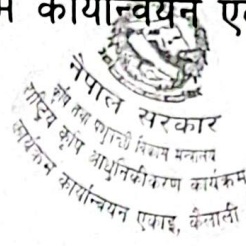 कार्यान्वयन ए
नेपाल सरकार
कृषि तथा पशुपन्छी विकास मन्त्रालय
कृषि आधुनिकीकरण कार्यक्रम
कार्यक्रम कार्यान्वयन एकाइ, कैलाली